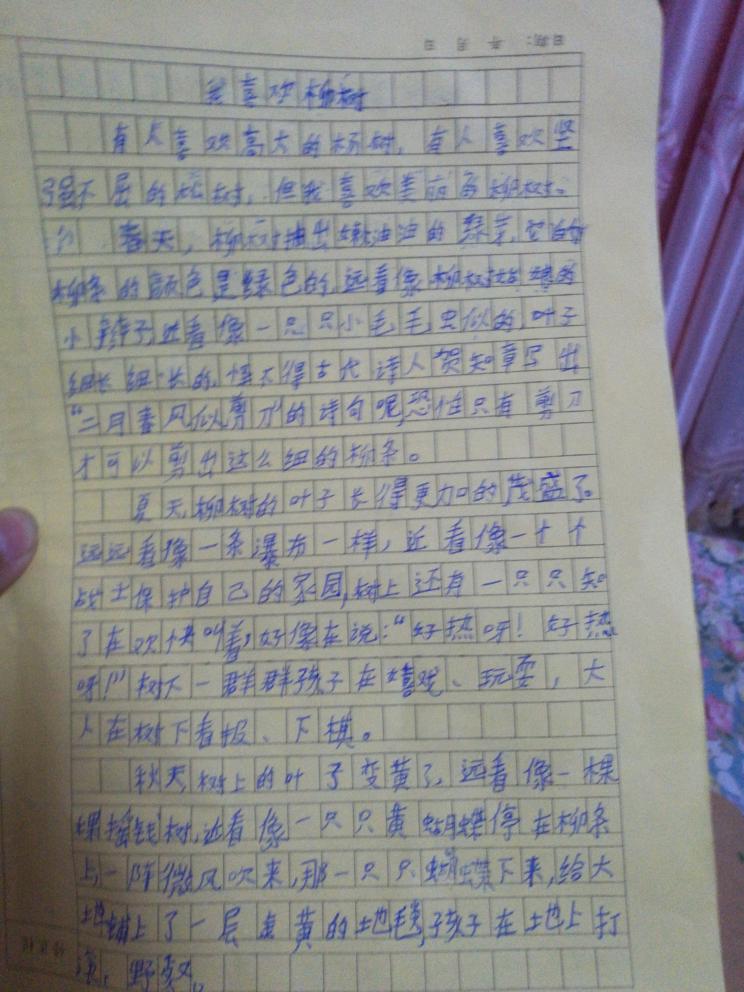 日期： 年 月 日
我喜欢柳树
有人喜欢高大的杨树，有人喜欢坚
强不屈的松树，但我喜欢美丽的柳树。
春天，柳树抽出嫩油油的绿芽，它的
柳条的颜色是绿色的，远看像柳树姑娘的
小辫子，近看像一只只小毛毛虫似的，叶子
细长细长的，怪不得古代诗人贺知章写出
“二月春风似剪刀”的诗句呢，恐怕只有剪刀
才可以剪出这么细的柳条。
夏天，柳树的叶子长得更加的茂盛了。
远远看像一条瀑布一样，近看像一个个
战士保护自己的家园，树上还有一只只知
了在欢快叫着，好像在说：“好热呀！好热
呀！”树下一群群孩子在嬉戏、玩耍，大
人在树下看报、下棋。
秋天，树上的叶子变黄了，远看像一棵
棵摇钱树，近看像一只只黄蝴蝶停在柳条
上，一阵微风吹来，那一只只蝴蝶下来，给大
地铺上了一层金黄的地毯，孩子在土地上打
滚、野餐。